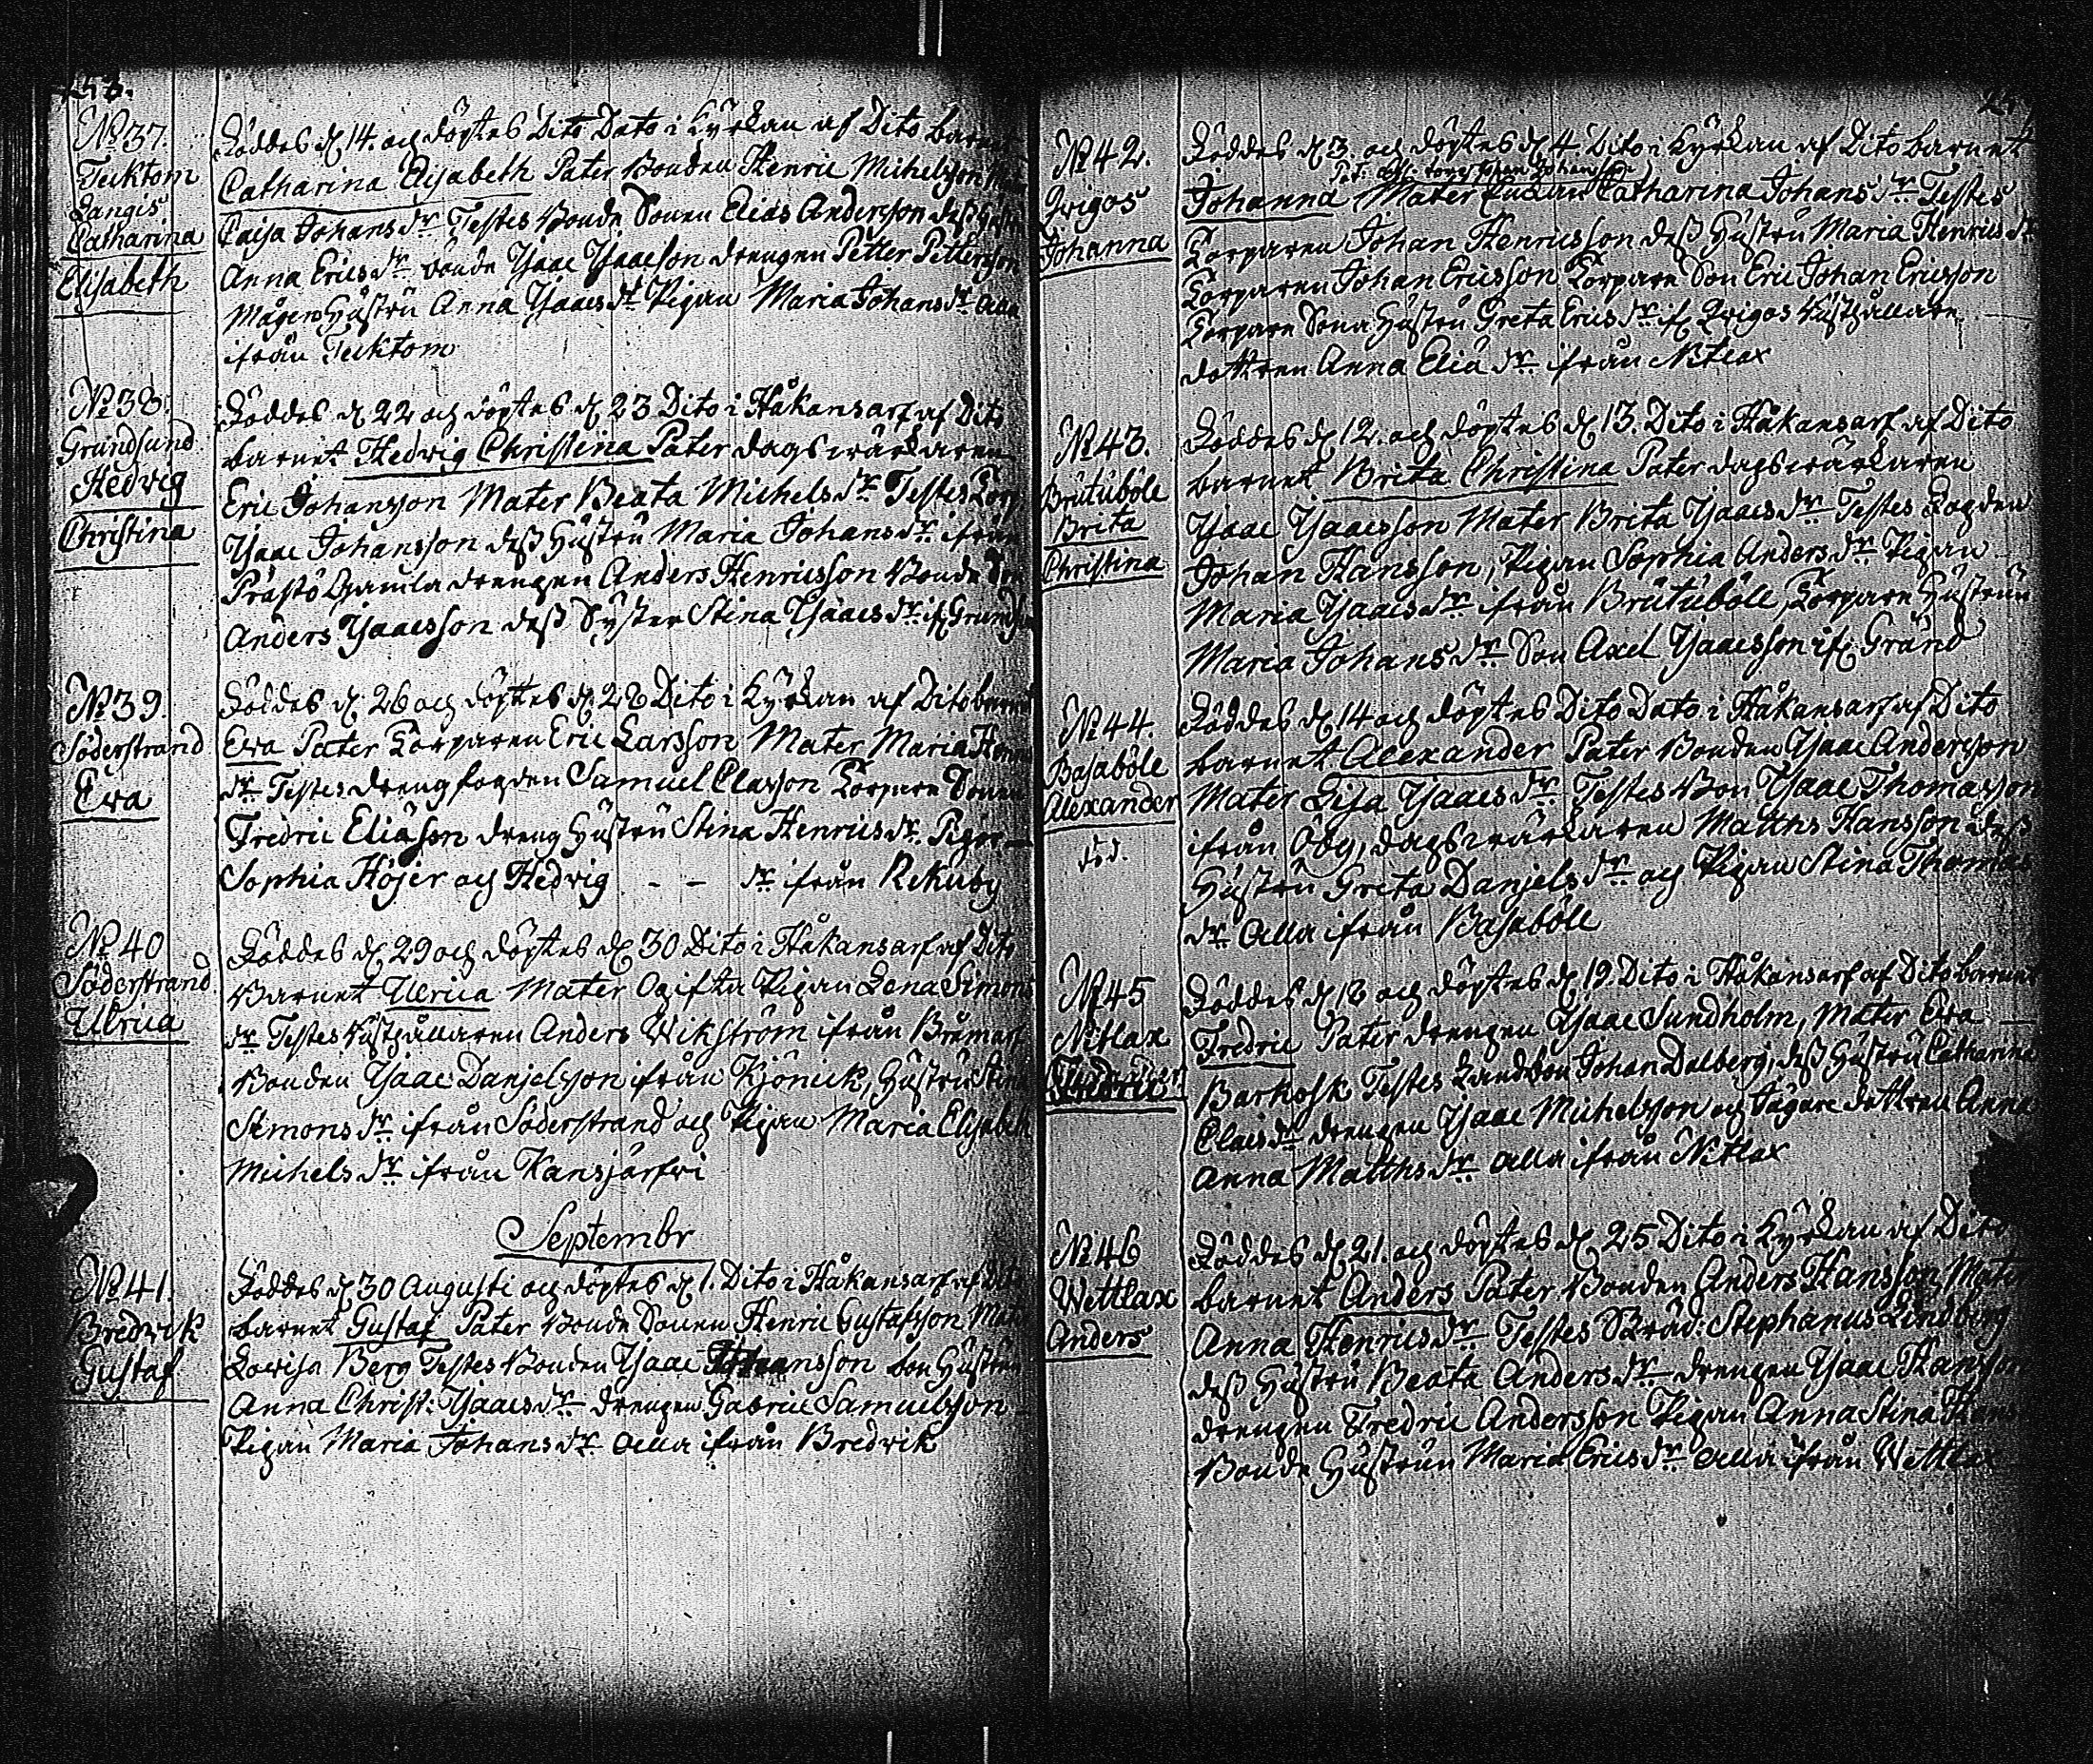 No 37.
Tecktom
Langis
Catharina
Elisabeth
Föddes d. 14. och döptes Dito Dato i Kyrkan af Dito barnet
Catharina Elisabeth Pater Bonden Henric Michelsson
Caisa Johans dr Testes Bonde Sonen Elias Andersson dess
Anna Erics dr bonde Isaac Isaacsson drengen Petter Pettersson
Mågens Hustru Anna Isaacs dr Pigan Maria Johans dr alla
ifrån Tecktom
No 38.
Grundsund
Hedvig
Christina
Föddes d. 22 och döptes d. 23 Dito i Håkansarf af Dito
barnet Hedvig Christina Pater dagswärkaren
Eric Johansson Mater Beata Michels dr Testes
Isaac Johansson dess Hustru Maria Johans dr ifrån
Prästö Gamla drengen Anders Henricsson Bonde
Anders Isaacsson dess Syster Stina Isaacs dr if.
No 39.
Söderstrand
Eva
Föddes d. 26 och döptes d. 28 Dito i Kyrkan af Dito barnet
Eva Pater Torparen Eric Larsson Mater Maria
dr Testes drengfogden Samuel Classon Torpare Sonen
Fredric Eliäson dreng Hustru Stina Henrics dr. Pigor
Sophia Höjer och Hedvig - - dr ifrån Rekuby
No 40
Söderstrand
Ulrica
Föddes d. 29 och döptes d. 30 Dito i Håkansarf af Dito
Barnet Ulrica Mater Ogifta Pigan Lena Simons
dr Testes Rusthållaren Anders Wikström ifrån Bromarf
Bonden Isaac Danjelsson ifrån Kjönick, Hustru
Simons dr ifrån Söderstrand och Pigan Maria Elisabeth
Michels dr ifrån Kansjärfvi
Septembr
No 41.
Bredvik
Gustaf
Föddes d. 30 Augusti och döptes d. 1. Dito i Håkansarf af Dito
barnet Gustaf Pater Bonde Sonen Henric Gustafsson
Lovisa Berg Testes Bonden Isaac Hustrun
Anna Christ: Isaacs dr drengen Gabriel Samuelsson
Pigan Maria Johans dr alla ifrån Bredvik
No 42.
Qvigos
Johanna
Föddes d. 3 och döptes d. 4 Dito i Kyrkan af Dito barnet
Johan Johansson
Johanna Mater Catharina Johans dr Testes
Torparen Johan Henricsson dess Hustru Maria Henrics dr
Torparen Johan Ericsson Torpare Son Eric Johan Ericsson
Torpare Sona Hustru Greta Erics dr if. Qvigos Rusthållare
dottren Anna Eliä dr ifrån Nitlax
No 43.
Brutuböle
Brita
Christina
Föddes d. 12. och döptes d. 13. Dito i Håkansarf af Dito
barnet Brita Christina Pater dagswärkaren
Isaac Isaacsson Mater Brita Isaacs dr Testes Fogden
Johan Hansson, Pigan Sophia Anders dr Pigan
Maria Isaacs dr ifrån Brutuböle, Torpare Hustrun
Maria Johans dr Son Axel Isaacsson if. Gränd
No 44.
Basaböle
Alexander
död.
Föddes d. 14 och döptes Dito Dato i Håkansarf af Dito
barnet Alexander Pater Bonden Isaac Andersson
Mater Lisa Isaacs dr Testes Bon Isaac Thomasson
ifrån Öby, dagswärkaren Matths Hansson dess
Hustru Greta Danjels dr och Pigan Stina Thomas
dr Alla ifrån Basaböle
No 45
Nitlax
Fredric
Föddes d. 18 och döptes d. 19. Dito i Håkansarf af Dito barnet
Fredric Pater drengen Isaac Sundholm, Mater Eva
Barkosk Testes Landbon Johan Dalberg, dess Hustru Catharina
Claes dr drengen Isaac Michelsson och Sågare dottren Anna
Anna Matths dr alla ifrån Nitlax
No 46
Wettlax
Anders
Föddes d. 21. och döptes d. 25 Dito i Kyrkan af Dito
barnet Anders Pater Bonden Anders Hansson, Mater
Anna Henrics dr Testes Skräd: Stephanus Lindberg
dess Hustru Beata Anders dr drengen Isaac Hansson
drengen Fredric Andersson Pigan Anna Stina Hans
Bonde Hustrun Maria Erics dr alla ifrån Wettlax